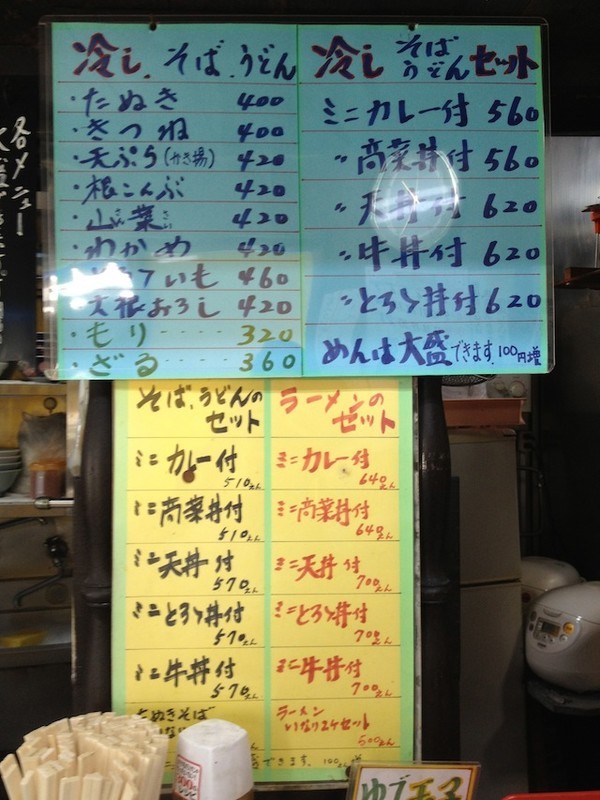 冷し、そば、うどん
・たぬき 400
・きつね 400
・天ぷら(かき揚) 420
・根こんぶ 420
・山菜 420
・わかめ 420
いも 460
・大根おろし 420
・もり 320
・ざる 360
冷しそばうどんセット
ミニカレー付 560
〃高菜丼付 560
〃天丼付 620
〃牛丼付 620
〃とろろ丼付 620
めんは大盛できます。100円増
各メニュー
そば、うどんの
セット
ミニカレー付
510えん
ミニ高菜丼付
510えん
ミニ天丼付
570えん
ミニとろろ丼付
570えん
ミニ牛丼付
570えん
たぬきそば
ラーメンの
セット
ミニカレー付
640えん
ミニ高菜丼付
640えん
ミニ天丼付
700えん
ミニとろろ丼付
700えん
ミニ牛丼付
700えん
ラーメン
いなり2ケセット
500えん
できます。100えん増
ゆで玉子